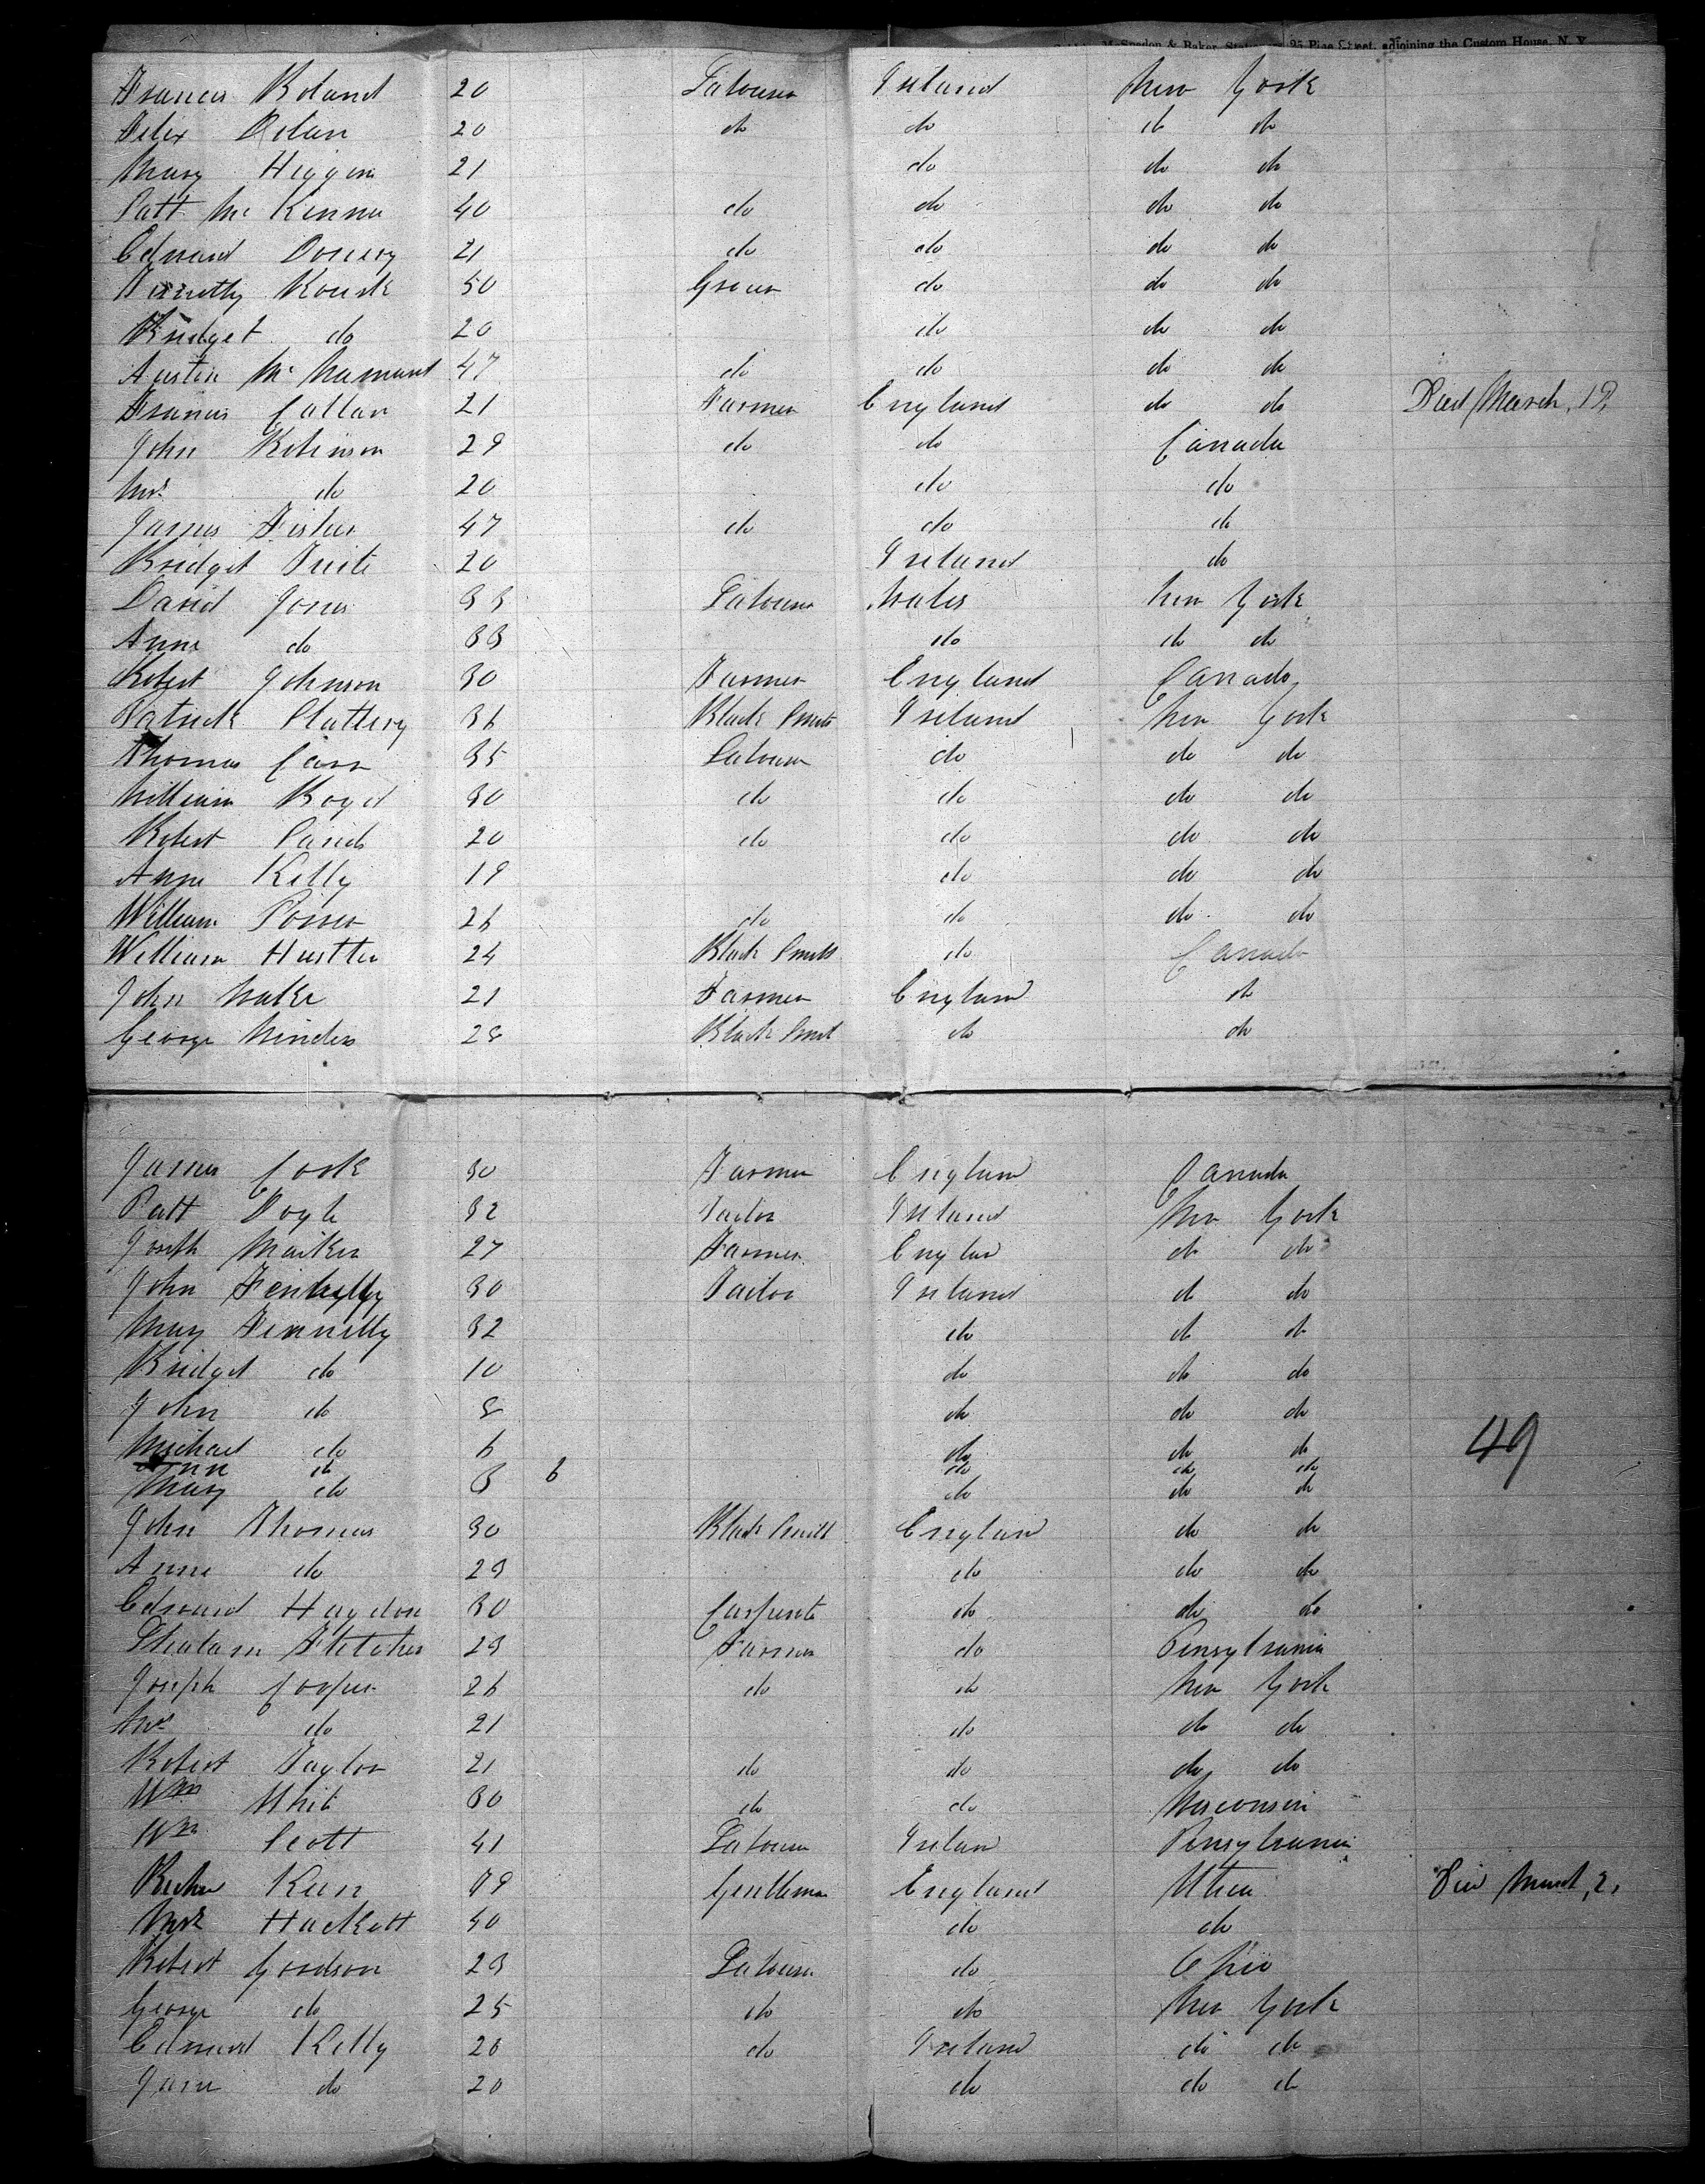 25 Pine Street, adjoining the Custom House, N. Y.
Francis Boland 20 Labourer Ireland New York
Felix Dolan 20 do do do do
Mary Higgins 21 do do do
Patt McKenna 40 do do do do
Edward 21 do do do do
50 Grocer do do do
Bridget do 20 do do do
Austin McNamara 47 do do do do
Francis Callan 21 Farmer England do do Died March, 19,
John Robinson 29 do do Canada
Mrs do 20 do do
James Fisher 47 do do do
Bridget 20 Ireland do
David Jones 33 Labourer Wales New York
Anne do 33 do do do
Robert Johnson 30 Farmer England Canada
Patrick Slattery 36 Black Smith Ireland New York
Thomas Carr 35 Labourer do do do
William Boyd 30 do do do do
Robert 20 do do do do
Anne Kelly 19 do do do
William 26 do do do do
William 24 Black Smith do Canada
John 21 Farmer England do
George 28 Black Smit do do
James 30 Farmer England Canada
Patt Doyle 32 Tailor Ireland New York
Joseph 27 Farmer Englan do do
John 30 Tailor Ireland do do
Mary Fennelly 32 do do do
Bridget do 10 do do do
John do 8 do do do
Michael do 6 do do do 49
Ann do do do do
Mary do 3 6 do do do
John Thomas 30 Black Smith England do do
Anne do 23 do do do
Edward Haydon 30 Carpente do do do
Fletcher 23 Farmer do Pensylvania
Joseph Cooper 26 do do New York
Mrs do 21 do do do
Robert Taylor 21 do do do do
Wm Whit 30 do do Wisconsin
Wm Scott 41 Labourer Irelan Pensylvania
79 Gentleman England Utica Died March, 2,
Mrs Hackett 40 do do
Robert Goodson 23 Labourer do Ohio
George do 25 do do New York
Edward Kelly 20 do Ireland do do
Jane do 20 do do do